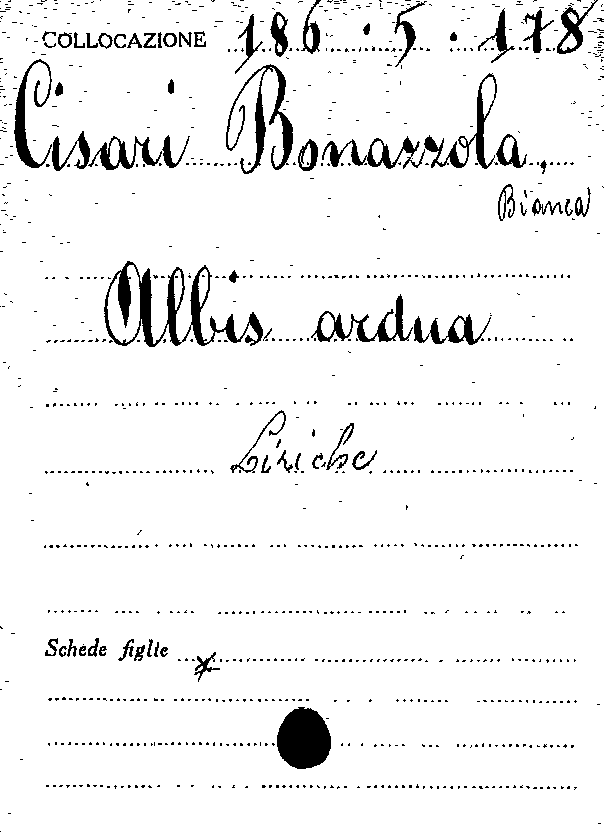 COLLOCAZIONE 186.5.178
Cisari Bonazzola,
Bianca
Albis ardua
Liriche
Schede figlie x